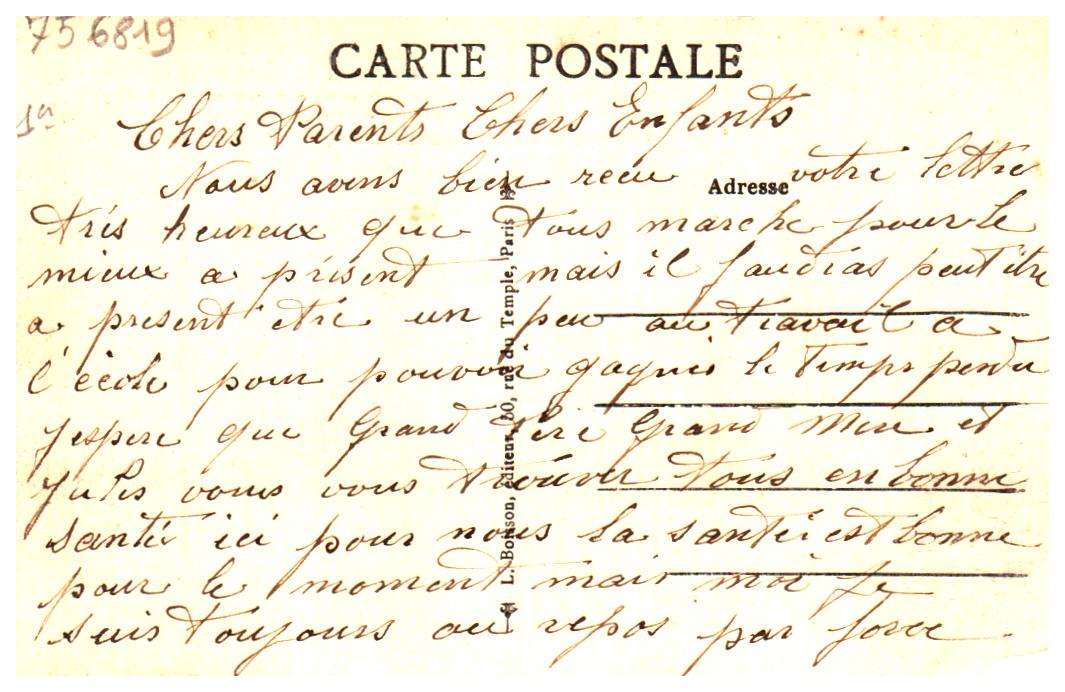 756819
CARTE POSTALE
1a
Chers Parents Chers Enfants
Nous avons bien recu votre lettre
Adresse
trés heureux que tous marche pour le
mieux a présent mais il faudras peut être
a present etre un peu au travail a
l'école pour pouvoir gagner le temps perdu
J'espere que Grand Père Grand Mere et
Jules vous vous trouver tous en bonne
santé ici pour nous la santé est bonne
pour le moment mais moi je
suis toujours au repos par force
L. Boisson, éditeur, 50, rue du Temple, Paris